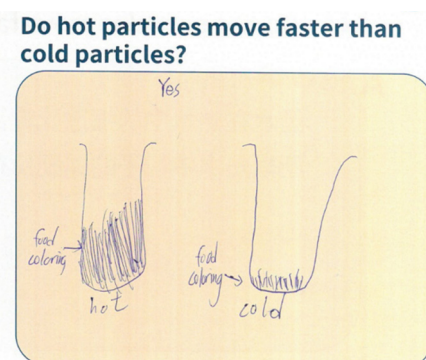 Do hot particles move faster than
cold particles?
Yes
food
coloring
hot
food
coloring
cold